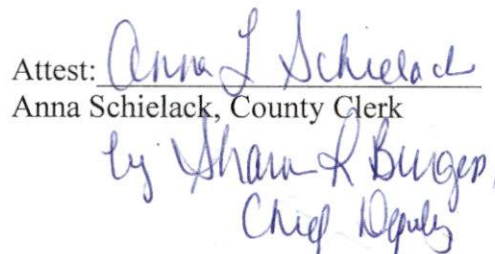 Attest: Anna L Schielack
Anna Schielack, County Clerk
by Sharon R Burger,
Chief Deputy